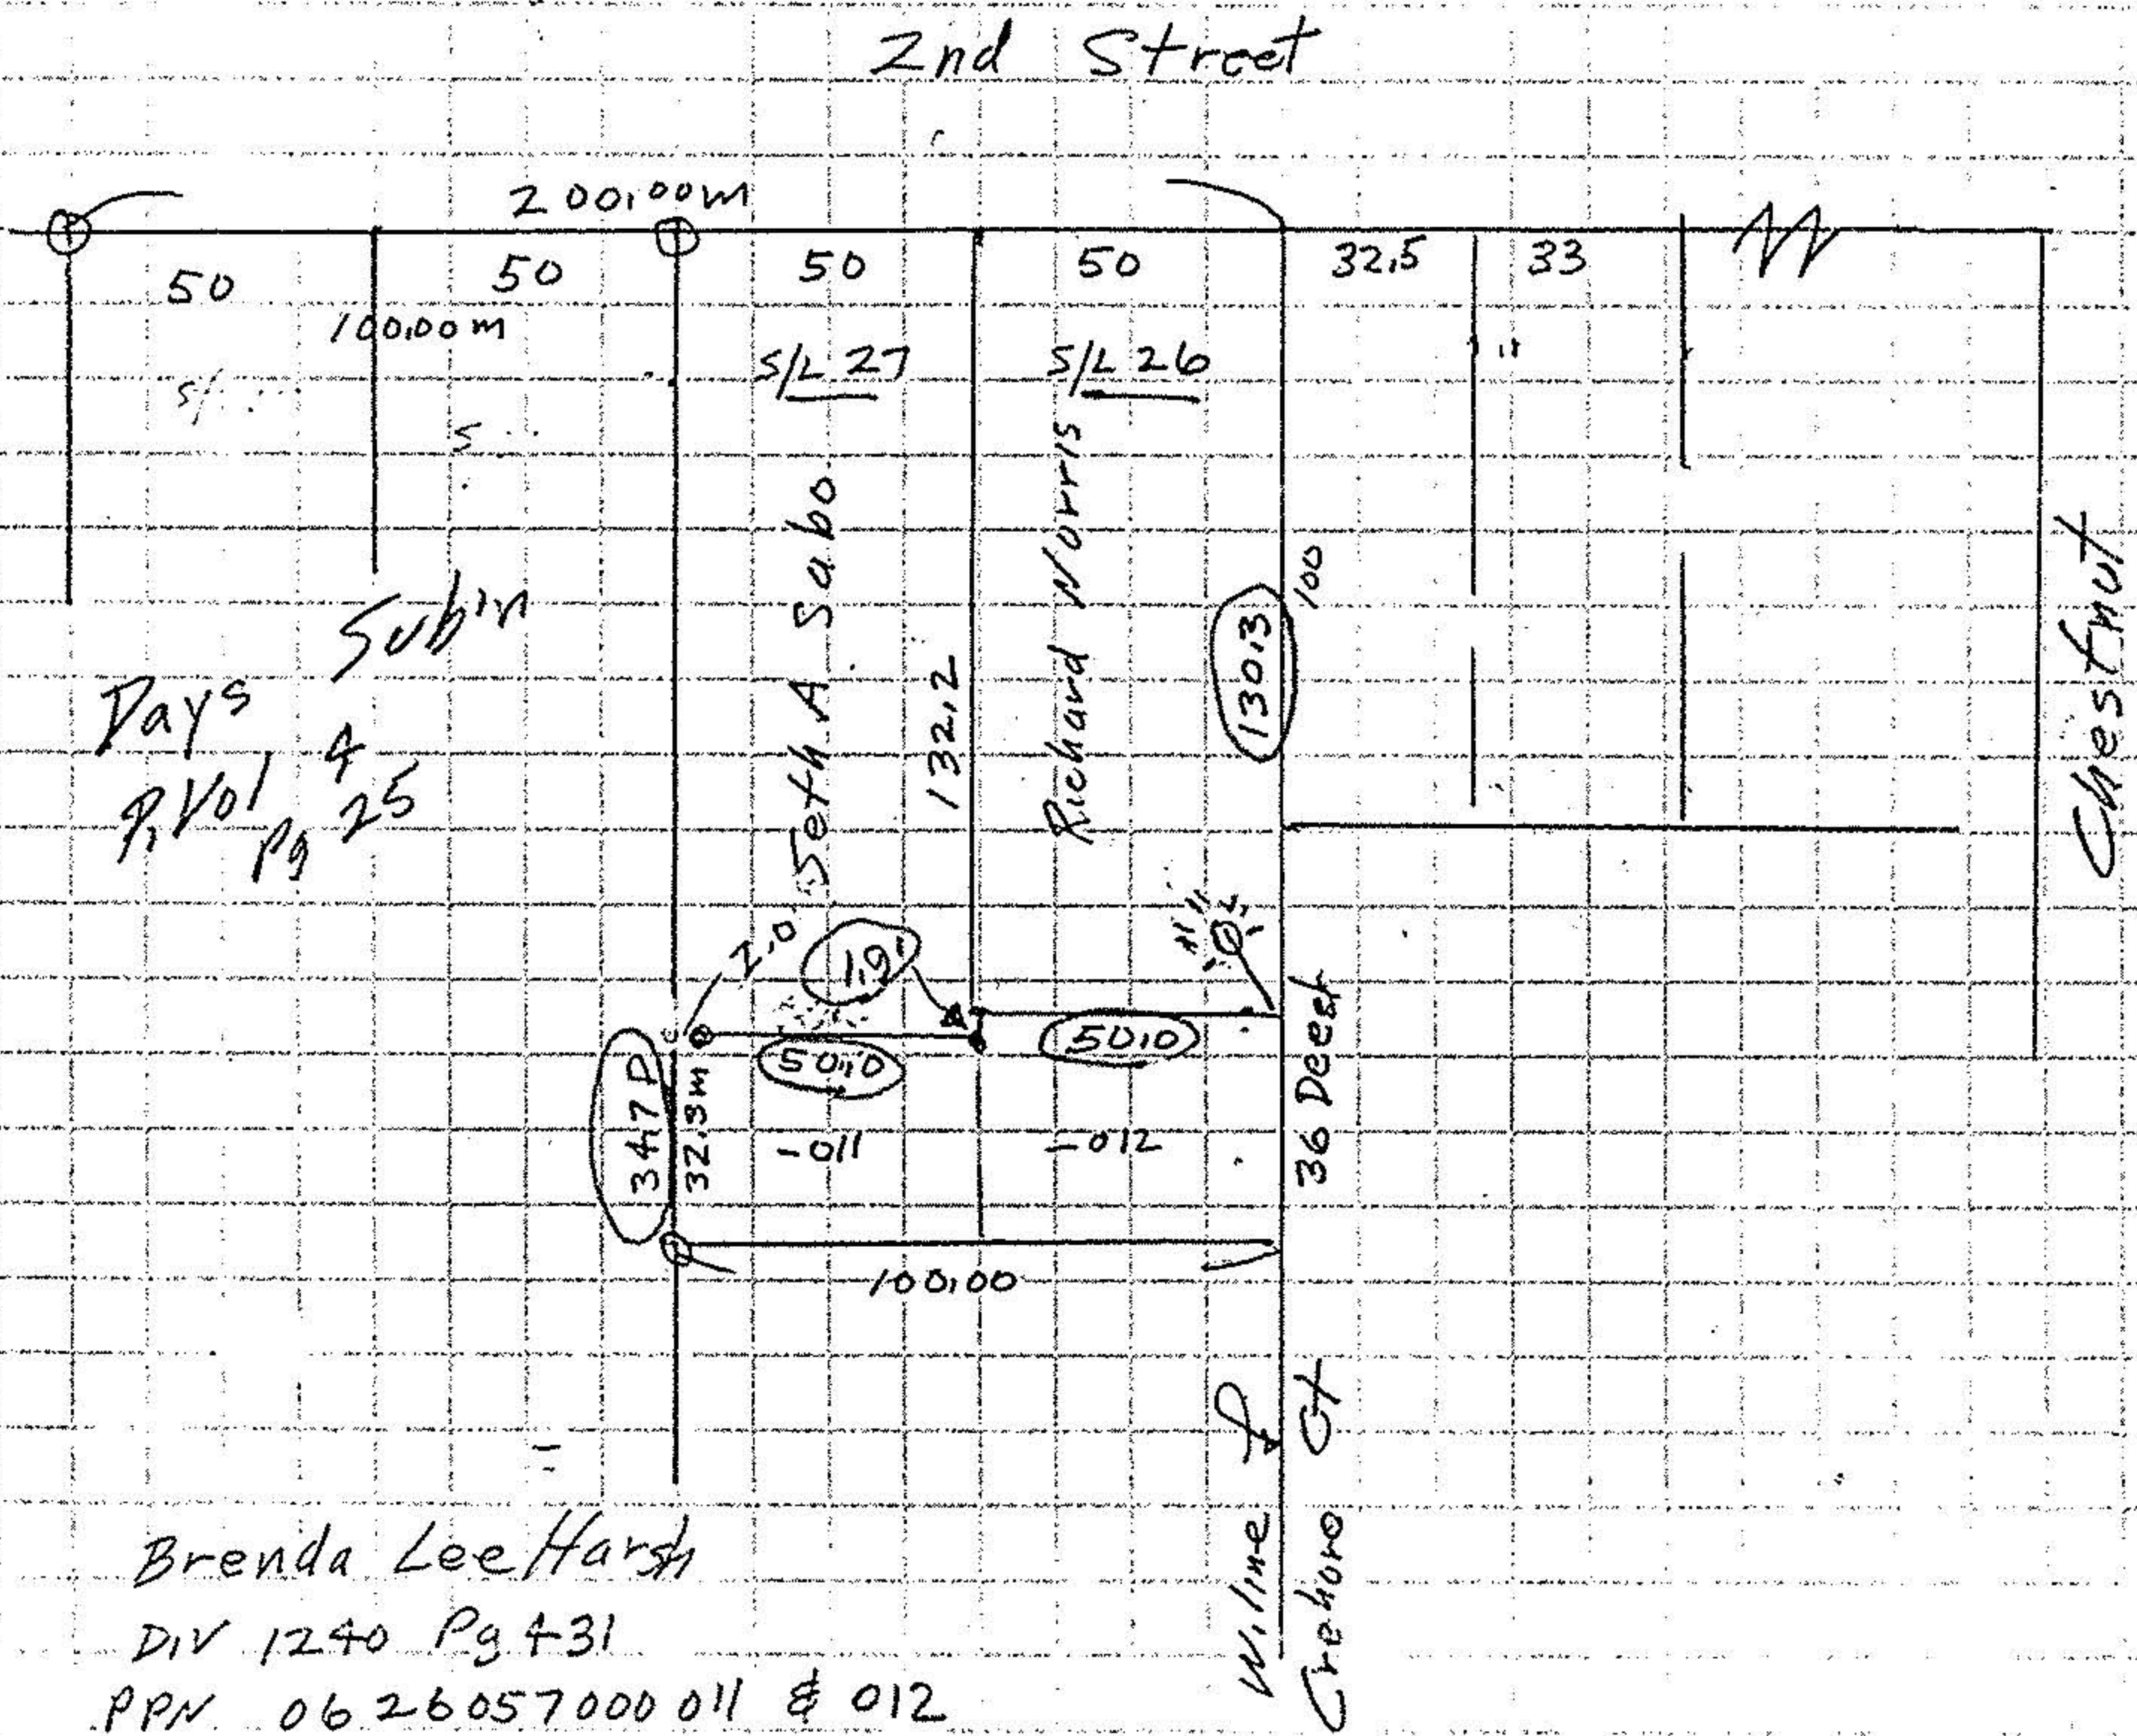 2nd Street
200.00m
50
50
50
50
32.5
33
100.00 m
S/L 27
S/L 26
Seth A Sabo
132.2
Richard Norris
130.3
100
Chestnut
Days
Subin
P. Vol 4
Pg 25
2.0
1.9'
50.0
50.0
36 Deed
34.7 D
32.3m
-011
-012
100.00
W. line of
Crehore Ct
Brenda Lee Harsh
D.V 1240 Pg 431
PPN 06 26057000 011 & 012